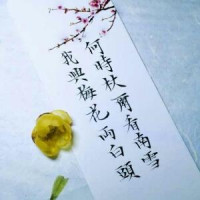 何時杖爾看南雪
我與梅花兩白頭